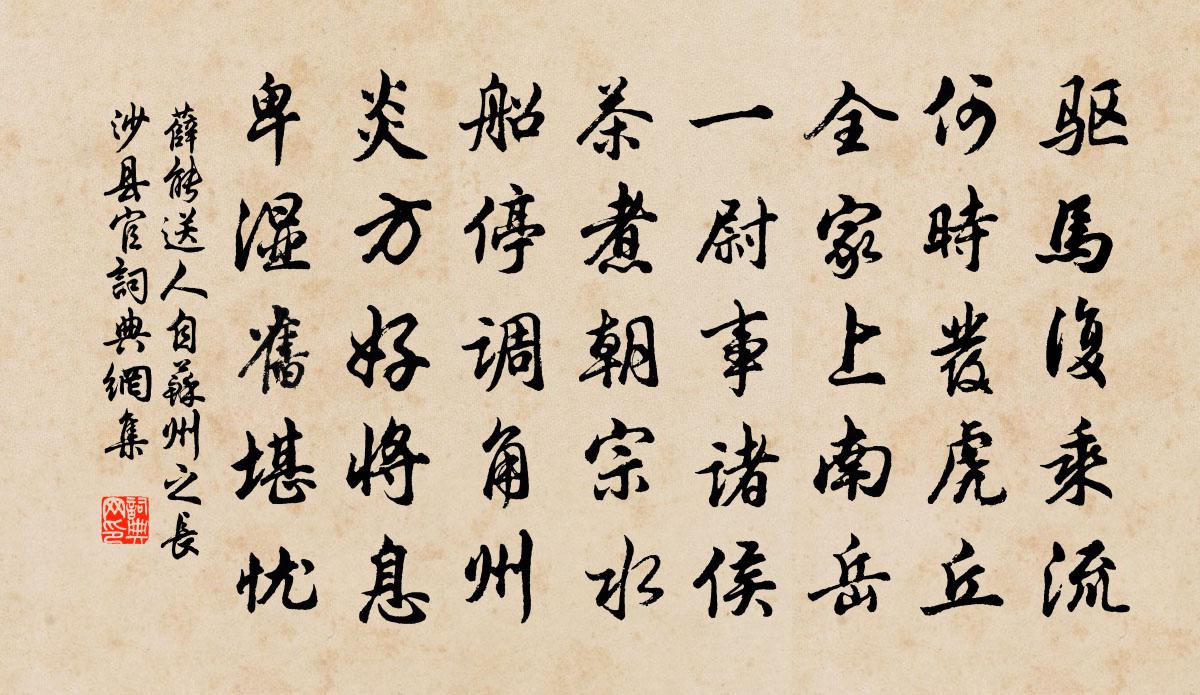 驱馬復乘流
何時發虎丘
全家上南岳
一尉事诸侯
茶煮朝宗水
船停调角州
炎方好将息
卑濕舊堪忧
薛能送人自蘇州之長
沙县官詞典網集
詞典
网印